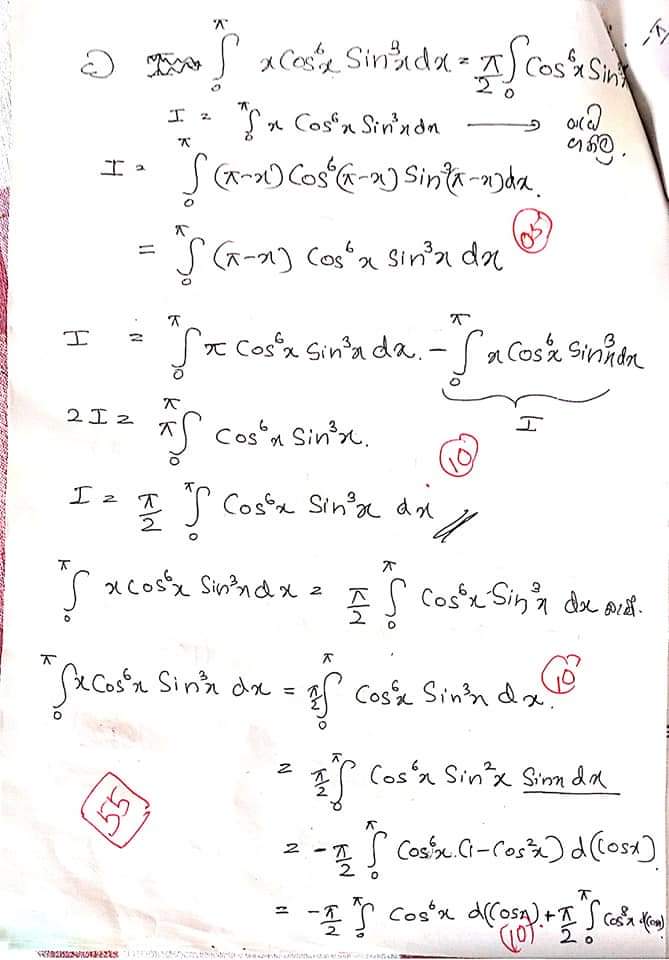 c) ∫₀^π x Cos⁶x Sin³x dx = π/2 ∫₀ Cos⁶x Sin³x
I = ∫₀^π x Cos⁶x Sin³x dx ⟶
I = ∫₀^π (π-x) Cos⁶(π-x) Sin³(π-x) dx.
= ∫₀^π (π-x) Cos⁶x Sin³x dx 05
I = ∫₀^π π Cos⁶x Sin³x dx. - ∫₀^π x Cos⁶x Sin³x dx
I
2I = π ∫₀^π Cos⁶x Sin³x.
10
I = π/2 ∫₀^π Cos⁶x Sin³x dx //
∫₀^π x Cos⁶x Sin³x dx = π/2 ∫₀^π Cos⁶x Sin³x dx
∫₀^π x Cos⁶x Sin³x dx = π/2 ∫₀^π Cos⁶x Sin³x dx. 10
= π/2 ∫₀^π Cos⁶x Sin²x Sinx dx
55
= -π/2 ∫₀^π Cos⁶x.(1-Cos²x) d(Cosx)
= -π/2 ∫₀^π Cos⁶x d(Cosx) + π/2 ∫₀^π Cos⁸x d(Cosx)
10